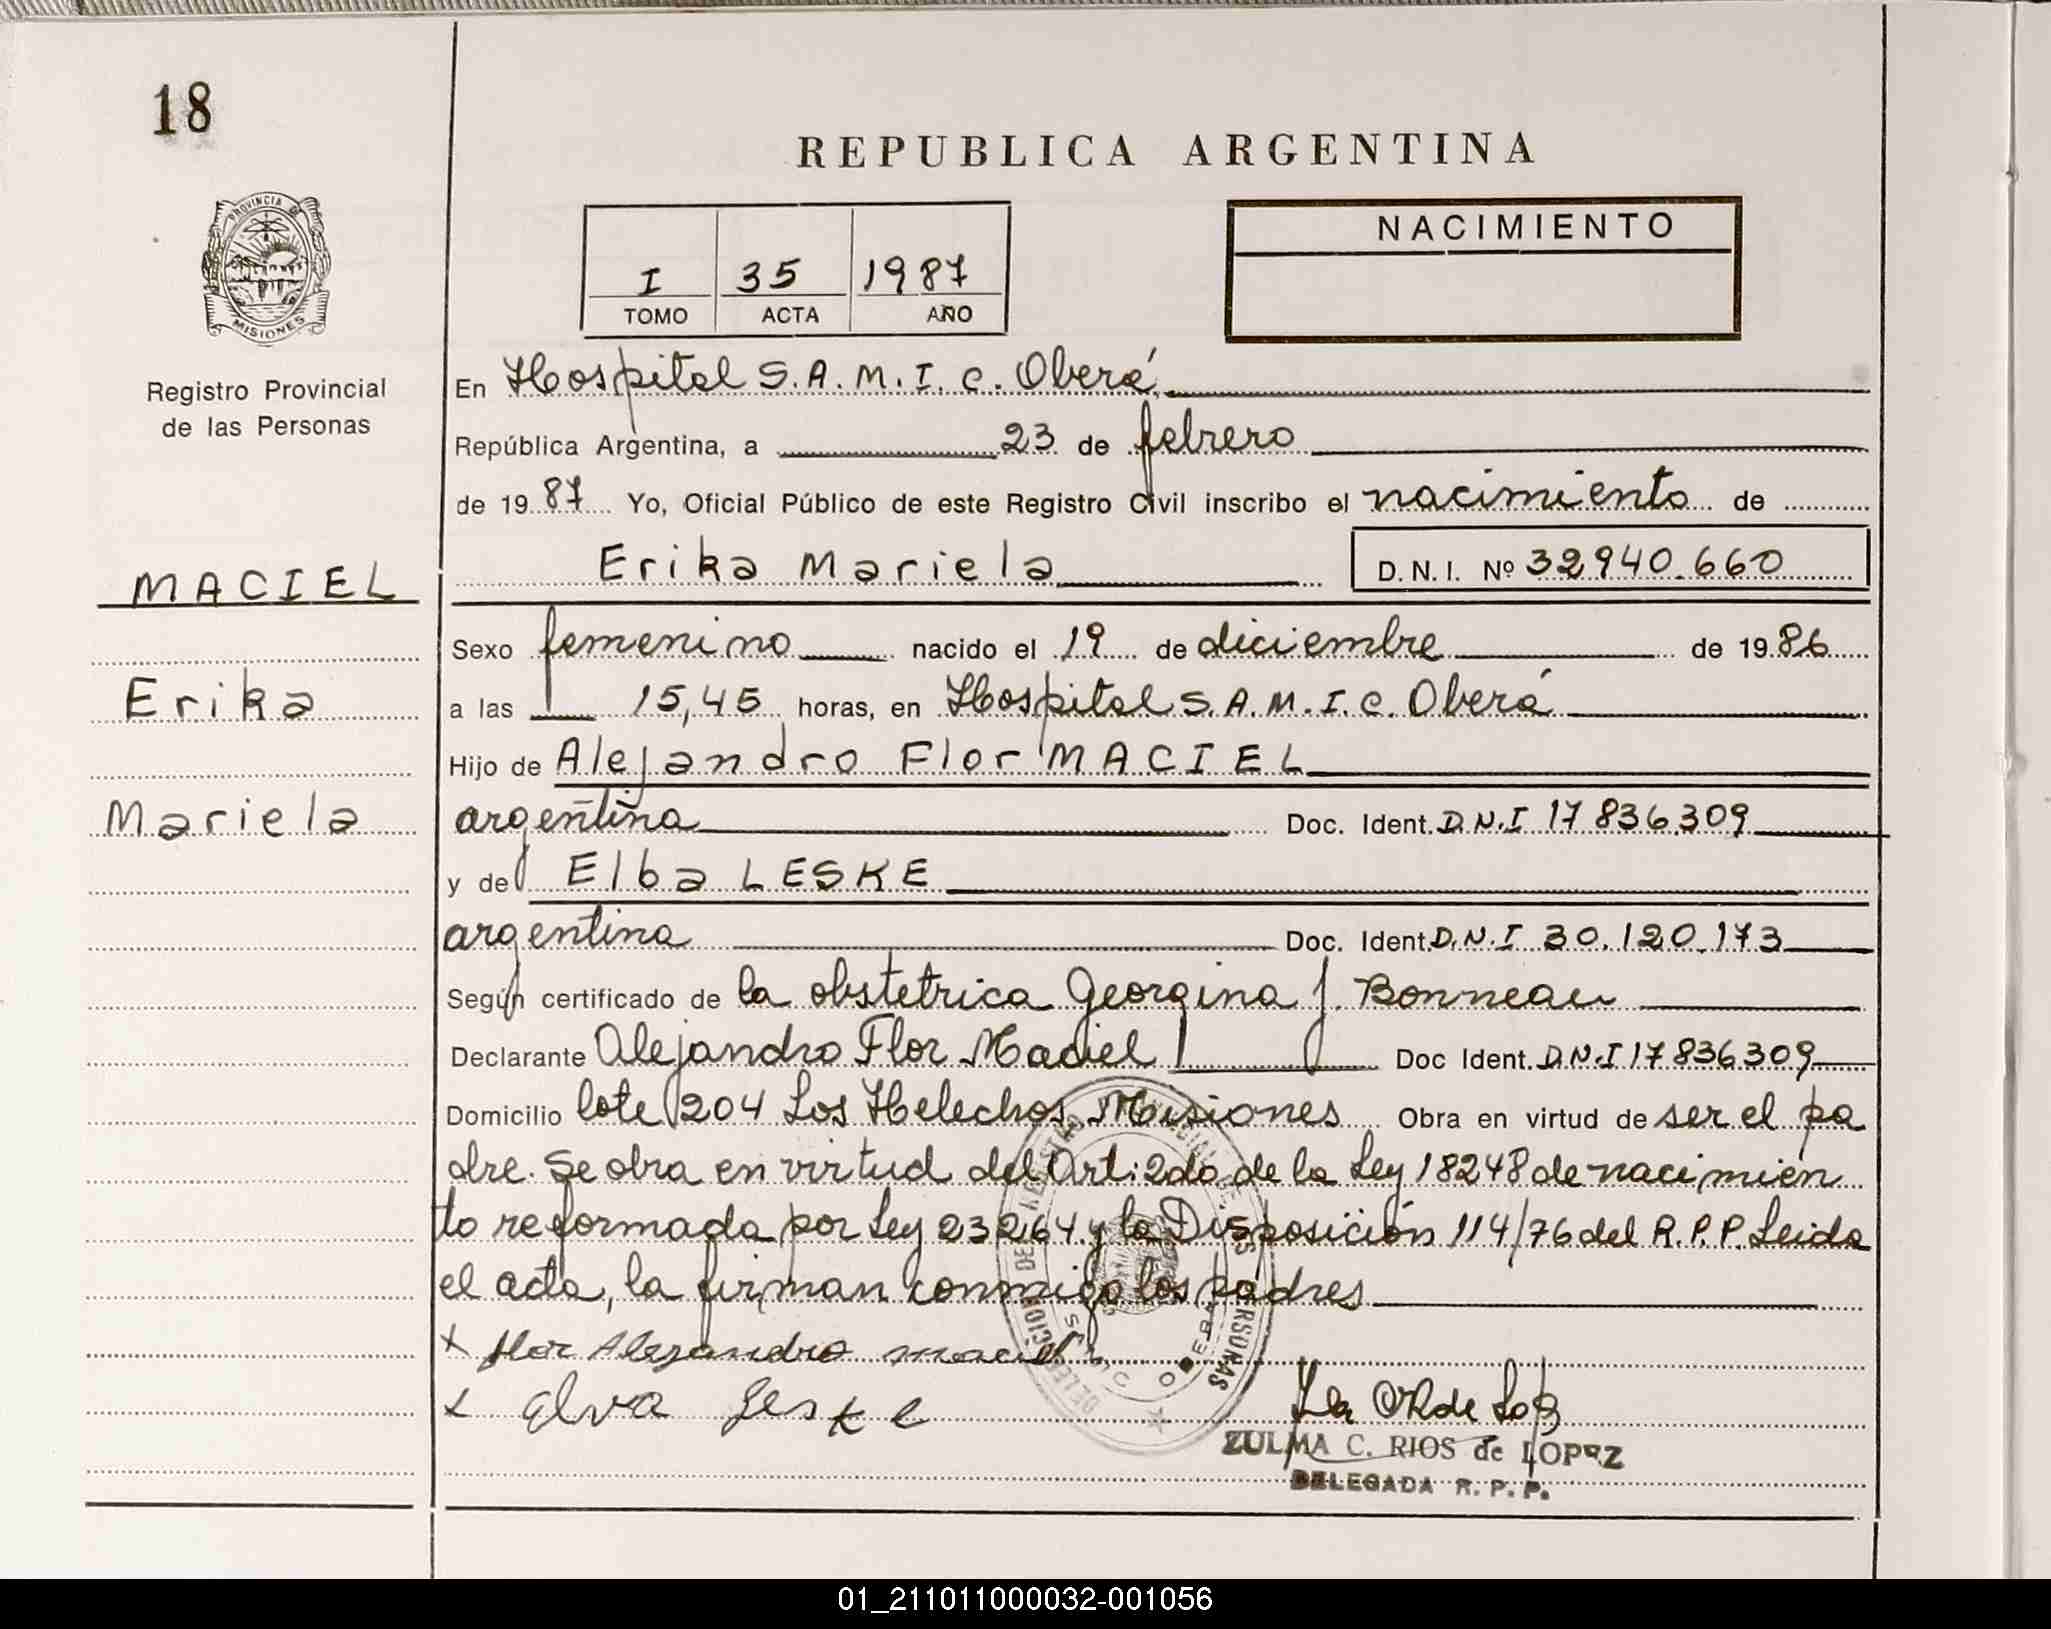 18
REPUBLICA ARGENTINA
PROVINCIA DE
MISIONES
NACIMIENTO
I 35 1987
TOMO ACTA AÑO
Registro Provincial
de las Personas
En Hospital S.A.M.I.C. Oberá
República Argentina, a 23 de febrero
de 1987 Yo, Oficial Público de este Registro Civil inscribo el nacimiento de
Erika Mariela D.N.I. Nº 32940.660
MACIEL
Erika
Mariela
Sexo femenino nacido el 19 de diciembre de 1986
a las 15,45 horas, en Hospital S.A.M.I.C. Oberá
Hijo de Alejandro Flor MACIEL
argentina Doc. Ident. D.N.I 17836309
y de Elba LESKE
argentina Doc. Ident. D.N.I 30.120.173
Según certificado de la obstetrica Georgina J. Bonneau
Declarante Alejandro Flor Maciel Doc Ident. D.N.I 17836309
Domicilio lote 204 Los Helechos Misiones Obra en virtud de ser el pa
dre. Se obra en virtud del Art: 2do de la Ley 18248 de nacimien
to reformada por Ley 23264 y la Disposición 114/76 del R.P.P. Leida
el acta, la firman conmigo los padres
x flor Alejandro maciel
x Elva Leske
ZULMA C. RIOS de LOPEZ
DELEGADA R.P.P.
01_211011000032-001056